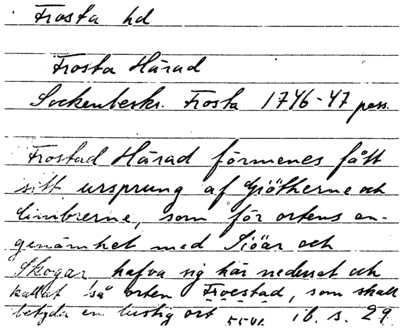 Frosta hd
Frosta Härad
Sockenbeskr. Frosta 1746-47 pass.
Frostad Härad förmenes fått
sitt ursprung af Giötherne och
Cimbrerne, som för ortens an-
genämhet med Siöar och
Skogar hafva sig här nedersat och
kallat så orten Froestad, som skall
betyda en lustig ort ib. s. 29